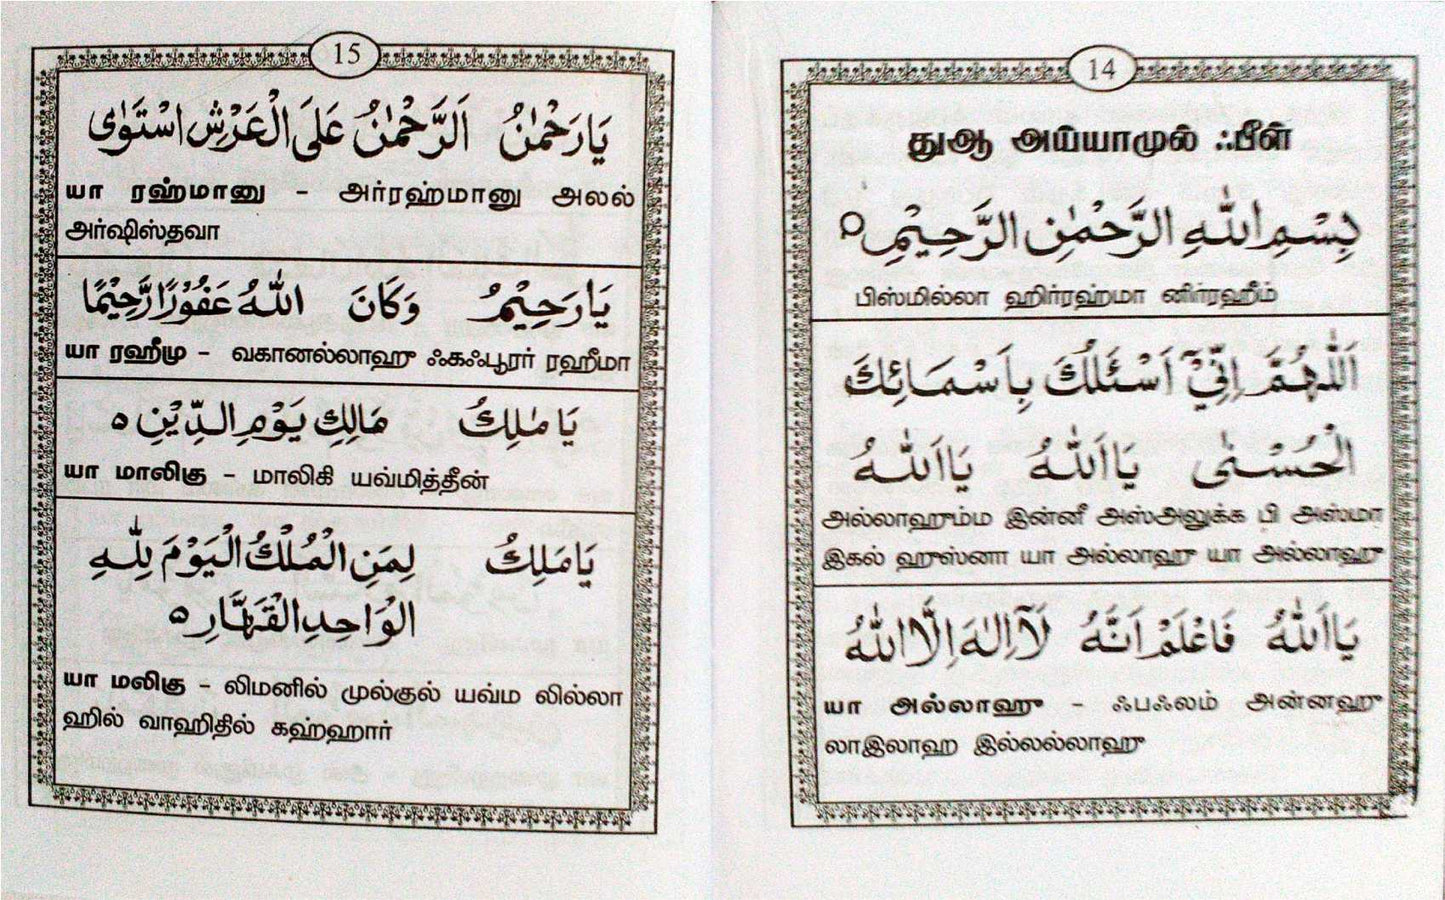 14
துஆ அய்யாமுல் ஃபீள்
بِسْمِ اللّٰهِ الرَّحْمٰنِ الرَّحِيْمِ ○
பிஸ்மில்லா ஹிர்ரஹ்மா னிர்ரஹீம்
اَللّٰهُمَّ اِنِّيْٓ اَسْئَلُكَ بِاَسْمَائِكَ
الْحُسْنٰى يَا اَللّٰهُ يَا اَللّٰهُ
அல்லாஹும்ம இன்னீ அஸ்அலுக்க பி அஸ்மா
இகல் ஹுஸ்னா யா அல்லாஹு யா அல்லாஹு
يَا اَللّٰهُ فَاعْلَمْ اَنَّهُ لَآ اِلٰهَ اِلَّا اللّٰهُ
யா அல்லாஹு – ஃபஃலம் அன்னஹு
லாஇலாஹ இல்லல்லாஹு
15
يَا رَحْمٰنُ اَلرَّحْمٰنُ عَلَى الْعَرْشِ اسْتَوٰى
யா ரஹ்மானு – அர்ரஹ்மானு அலல்
அர்ஷிஸ்தவா
يَا رَحِيْمُ وَكَانَ اللّٰهُ غَفُوْرًا رَّحِيْمًا
யா ரஹீமு – வகானல்லாஹு ஃகஃபூரர் ரஹீமா
يَا مٰلِكُ مَالِكِ يَوْمِ الدِّيْنِ ○
யா மாலிகு – மாலிகி யவ்மித்தீன்
يَا مَلِكُ لِمَنِ الْمُلْكُ الْيَوْمَ لِلّٰهِ
الْوَاحِدِ الْقَهَّارِ ○
யா மலிகு – லிமனில் முல்குல் யவ்ம லில்லா
ஹில் வாஹிதில் கஹ்ஹார்